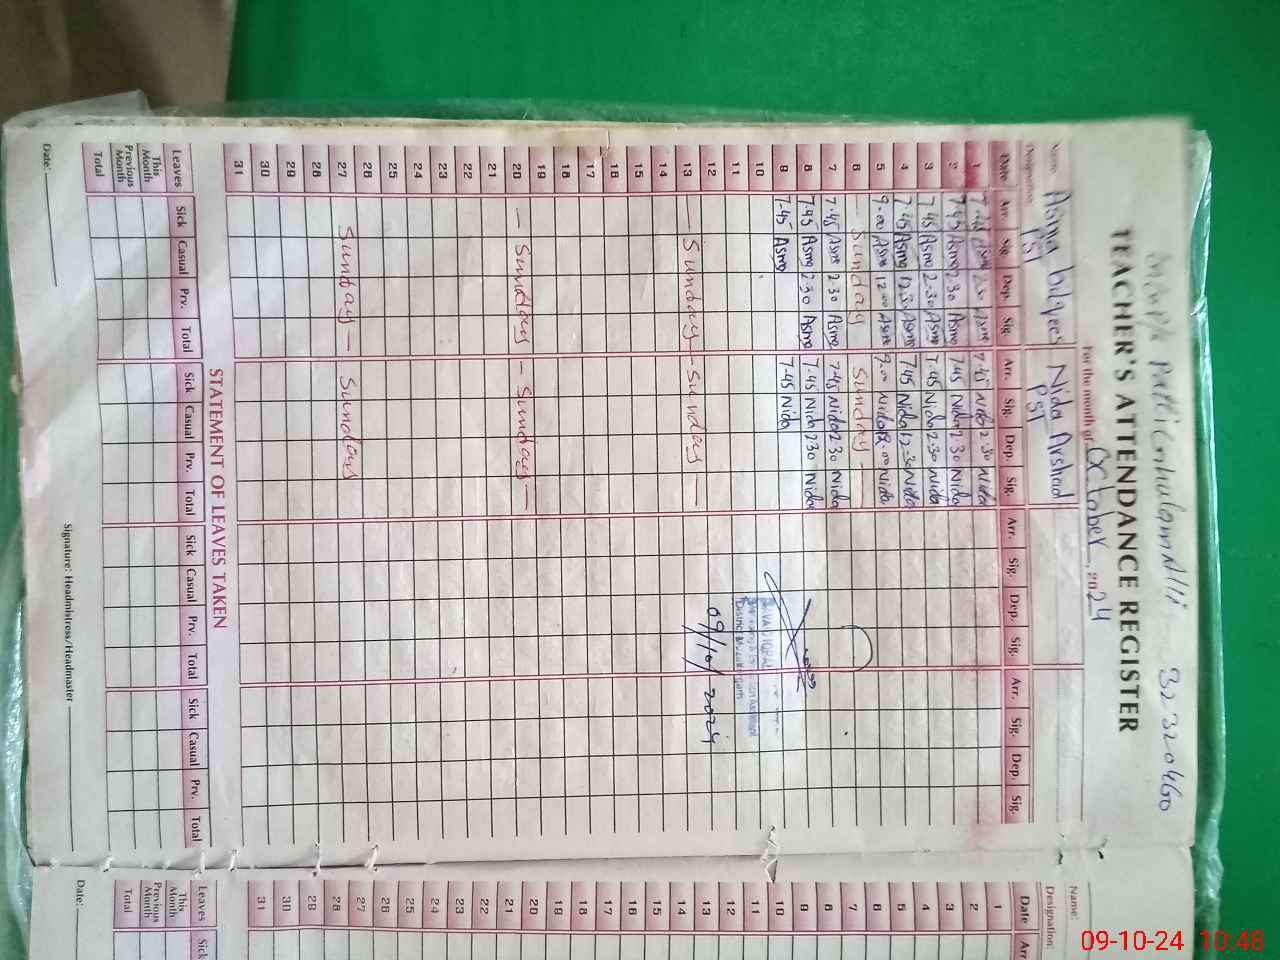 32320460
TEACHER'S ATTENDANCE REGISTER
For the month of October, 2024
Name Asma bilqees Nida Arshad
Designation PST PST
Date Arr. Sig. Dep. Sig. Arr. Sig. Dep. Sig. Arr. Sig. Dep. Sig. Arr. Sig. Dep. Sig.
1 7.45 Asma 2.30 Asma 7.45 Nida 2.30 Nida
2 7.45 Asma 2.30 Asma 7.45 Nida 2.30 Nida
3 7.45 Asma 2.30 Asma 7.45 Nida 2.30 Nida
4 7.45 Asma 12.30 Asma 7.45 Nida 12.30 Nida
5 9.00 Asma 12.00 Asma 9.00 Nida 12.00 Nida
6 — Sunday Sunday —
7 7.45 Asma 2.30 Asma 7.45 Nida 2.30 Nida
8 7.45 Asma 2.30 Asma 7.45 Nida 2.30 Nida
9 7.45 Asma 7.45 Nida
10
11
12 09/10/2024
13 — Sunday — Sunday —
14
15
16
17
18
19
20 — Sunday — Sunday —
21
22
23
24
25
26
27 Sunday — Sunday
28
29
30
31
STATEMENT OF LEAVES TAKEN
Leaves Sick Casual Prv. Total Sick Casual Prv. Total Sick Casual Prv. Total Sick Casual Prv. Total
This Month
Previous Month
Total
Date: Signature: Headmistress/Headmaster
Name:
Designation:
Date Arr.
1
2
3
4
5
6
7
8
9
10
11
12
13
14
15
16
17
18
19
20
21
22
23
24
25
26
27
28
29
30
31
Leaves Sick
This Month
Previous Month
Total
Date:
09-10-24 10:48